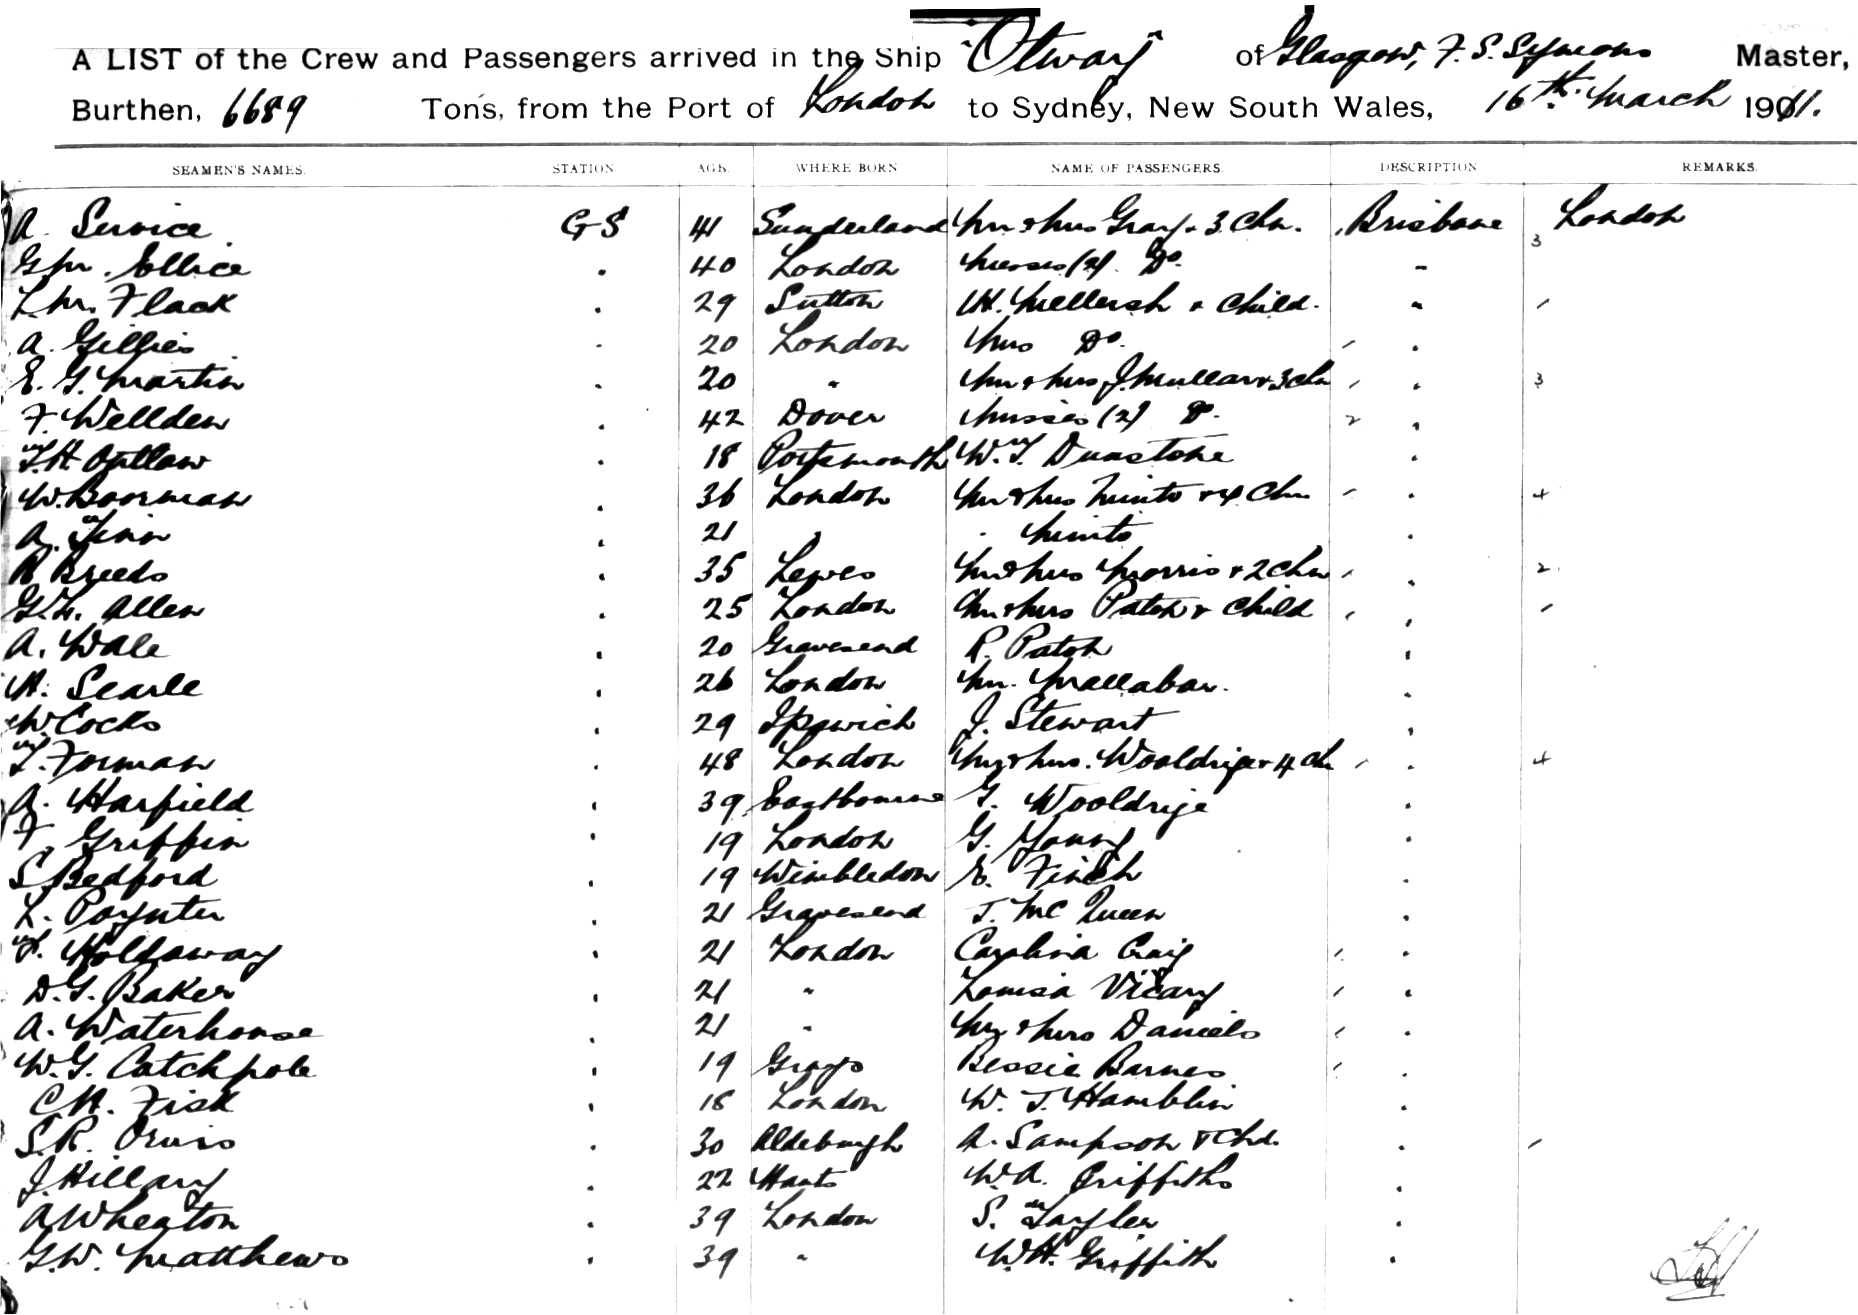 A LIST of the Crew and Passengers arrived in the Ship "Otway" of Glasgow, F. S. Symons Master,
Burthen, 6689 Tons, from the Port of London to Sydney, New South Wales, 16th March 1911.
SEAMEN'S NAMES. STATION AGE. WHERE BORN NAME OF PASSENGERS DESCRIPTION REMARKS.
A. Service GS 41 Sunderland Mr & Mrs Gray & 3 Chn. Brisbane 3 London
G M. Ellice . 40 London (2) Do. "
L. M. Flack . 29 Sutton H. Mellersh & Child. "
A. Gillies . 20 London Mrs Do. .
E. G. Martin . 20 " Mr & Mrs J. Mullar & 3 Chn . 3
F. Wellden . 42 Dover Misses (2) Do. 2 .
T. H Outlaw . 18 Portsmouth W. T. Dunstone .
W. Boorman . 36 London Mr & Mrs Minto & 4 Chn . 4
A. Finn . 21 " Minto .
R Breeds . 35 Lewes Mr & Mrs Morris & 2 Chn . 2
G. L. Allen . 25 London Mr & Mrs Paton & Child .
A. Wale . 20 Gravesend R. Paton .
H. Searle . 26 London Mr. Mallabar. .
W. Cocks . 29 Ipswich J. Stewart .
T. Forman . 48 London Mr & Mrs. Wooldrige & 4 Ch . 4
A. Harfield . 39 Eastbourne G. Wooldrige .
F. Griffin . 19 London G. Young .
S Bedford . 19 Wimbledon E. Finch .
L. Poynter . 21 Gravesend J. McQueen .
T. Holdaway . 21 London Carolina Craig .
D. G. Baker . 21 " Louisa Vicary .
A. Waterhouse . 21 " Mr & Mrs Daniels .
W. G. Catchpole . 19 Grays Bessie Barnes .
C H. Fisk . 18 London W. J. Hamblin .
S. R. Orvis . 30 Aldeburgh A. Sampson & Chd. .
J. Hillary . 22 Hants W. A. Griffiths .
A Wheaton . 39 London S. Tayler .
G. W. Matthews . 39 " W. H. Griffith .